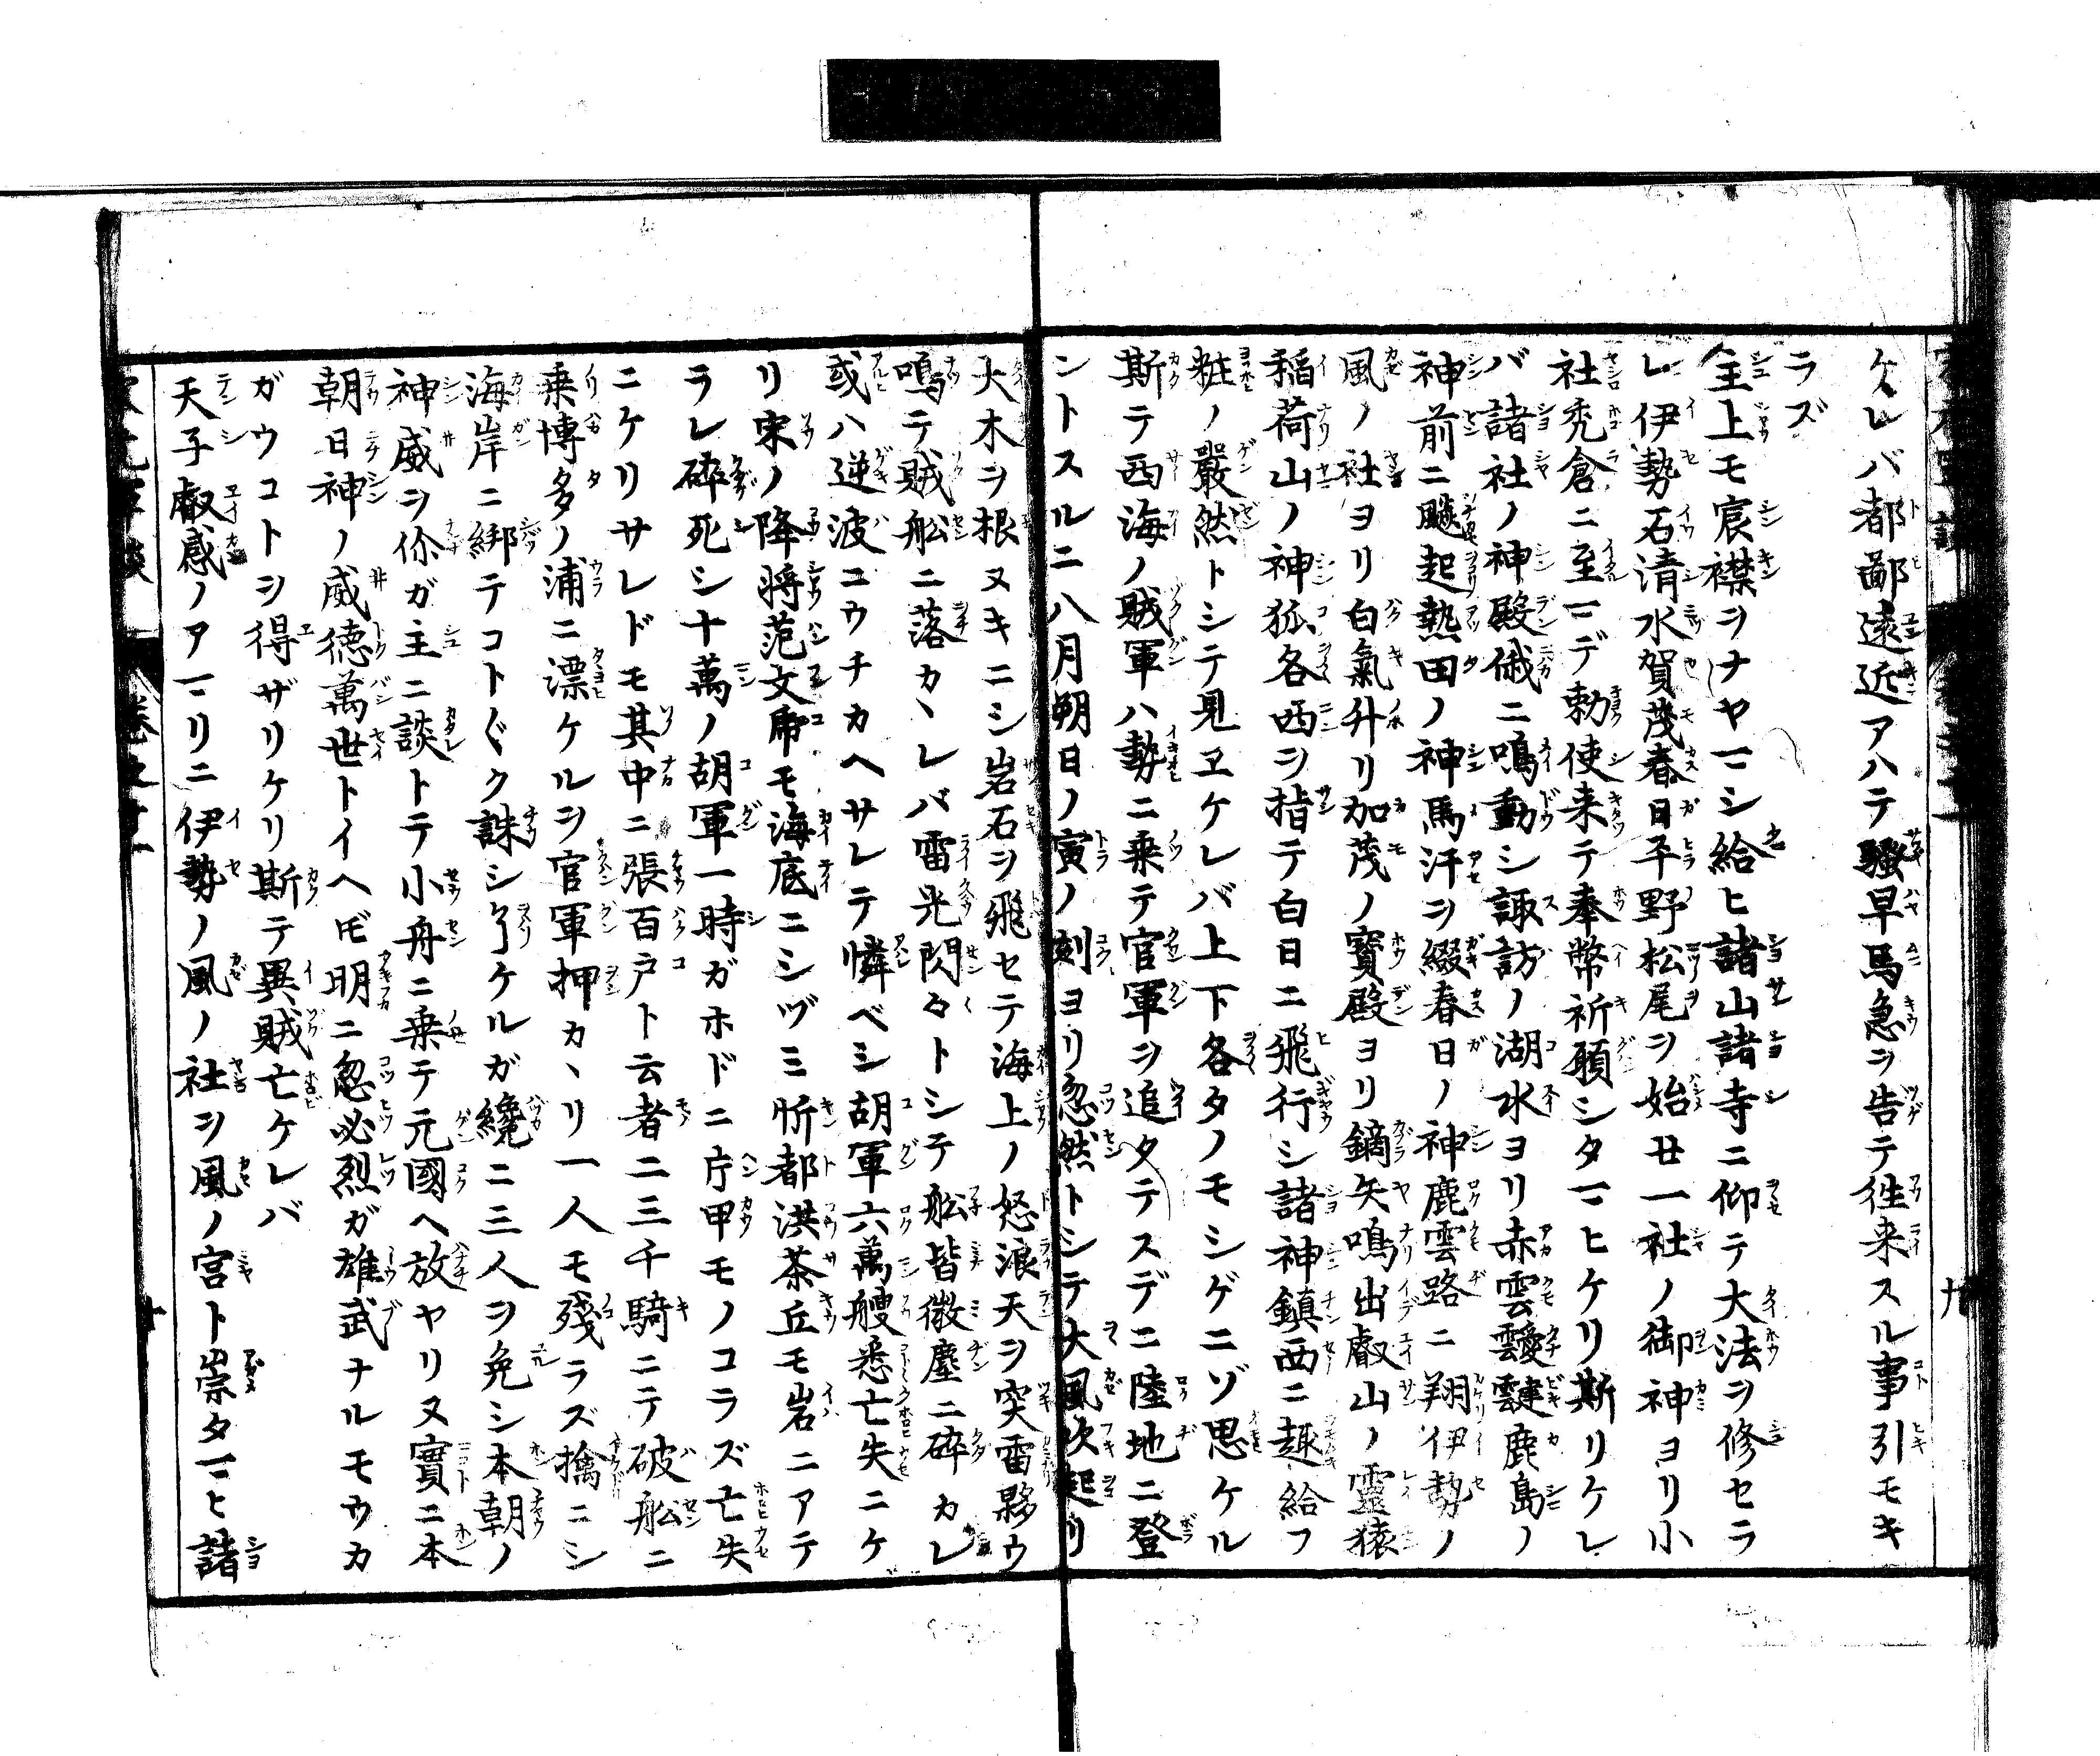 ケレバ都鄙遠近アハテ騒早馬急ヲ告テ徃来スル事引モキ
ラズ
主上モ宸襟ヲナヤマシ給ヒ諸山諸寺ニ仰テ大法ヲ修セラ
レ伊勢石清水賀茂春日平野松尾ヲ始廿一社ノ御神ヨリ小
社禿倉ニ至マデ勅使来テ奉幣祈願シタマヒケリ斯リケレ
バ諸社ノ神殿俄ニ鳴動シ諏訪ノ湖水ヨリ赤雲靉靆鹿島ノ
神前ニ飈起熱田ノ神馬汗ヲ綴春日ノ神鹿雲路ニ翔伊勢ノ
風ノ社ヨリ白氣升リ加茂ノ寳殿ヨリ鏑矢鳴出叡山ノ靈猿
稲荷山ノ神狐各西ヲ指テ白日ニ飛行シ諸神鎮西ニ趣給フ
粧ノ嚴然トシテ見ヱケレバ上下各タノモシゲニゾ思ケル
斯テ西海ノ賊軍ハ勢ニ乗テ官軍ヲ追タテスデニ陸地ニ登
ントスルニ八月朔日ノ寅ノ刻ヨリ忽然トシテ大風吹起リ
大木ヲ根ヌキニシ岩石ヲ飛セテ海上ノ怒浪天ヲ突雷夥ウ
鳴テ賊舩ニ落カヽレバ雷光閃々トシテ舩皆微塵ニ碎カレ
或ハ逆波コウチカヘサレテ憐ベシ胡軍六萬艘悉亡失ニケ
リ宋ノ降將范文乕モ海底ニシヅミ忻都洪茶丘モ岩ニアテ
ラレ碎死シ十萬ノ胡軍一時ガホドニ片甲モノコラズ亡失
ニケリサレドモ其中ニ張百戸ト云者二三千騎ニテ破舩ニ
乗博多ノ浦ニ漂ケルヲ官軍押カヽリ一人モ殘ラズ擒ニシ
海岸ニ綁テコトぐク誅シ了ケルガ纔ニ三人ヲ免シ本朝ノ
神威ヲ伱ガ主ニ談トテ小舟ニ乗テ元國ヘ放ヤリヌ實ニ本
朝日神ノ威徳萬世トイヘ𪜈明ニ忽必烈ガ雄武ナルモウカ
ガウコトヲ得ザリケリ斯テ異賊亡ケレバ
天子叡感ノアマリニ伊勢ノ風ノ社ヲ風ノ宮ト崇タマヒ諸